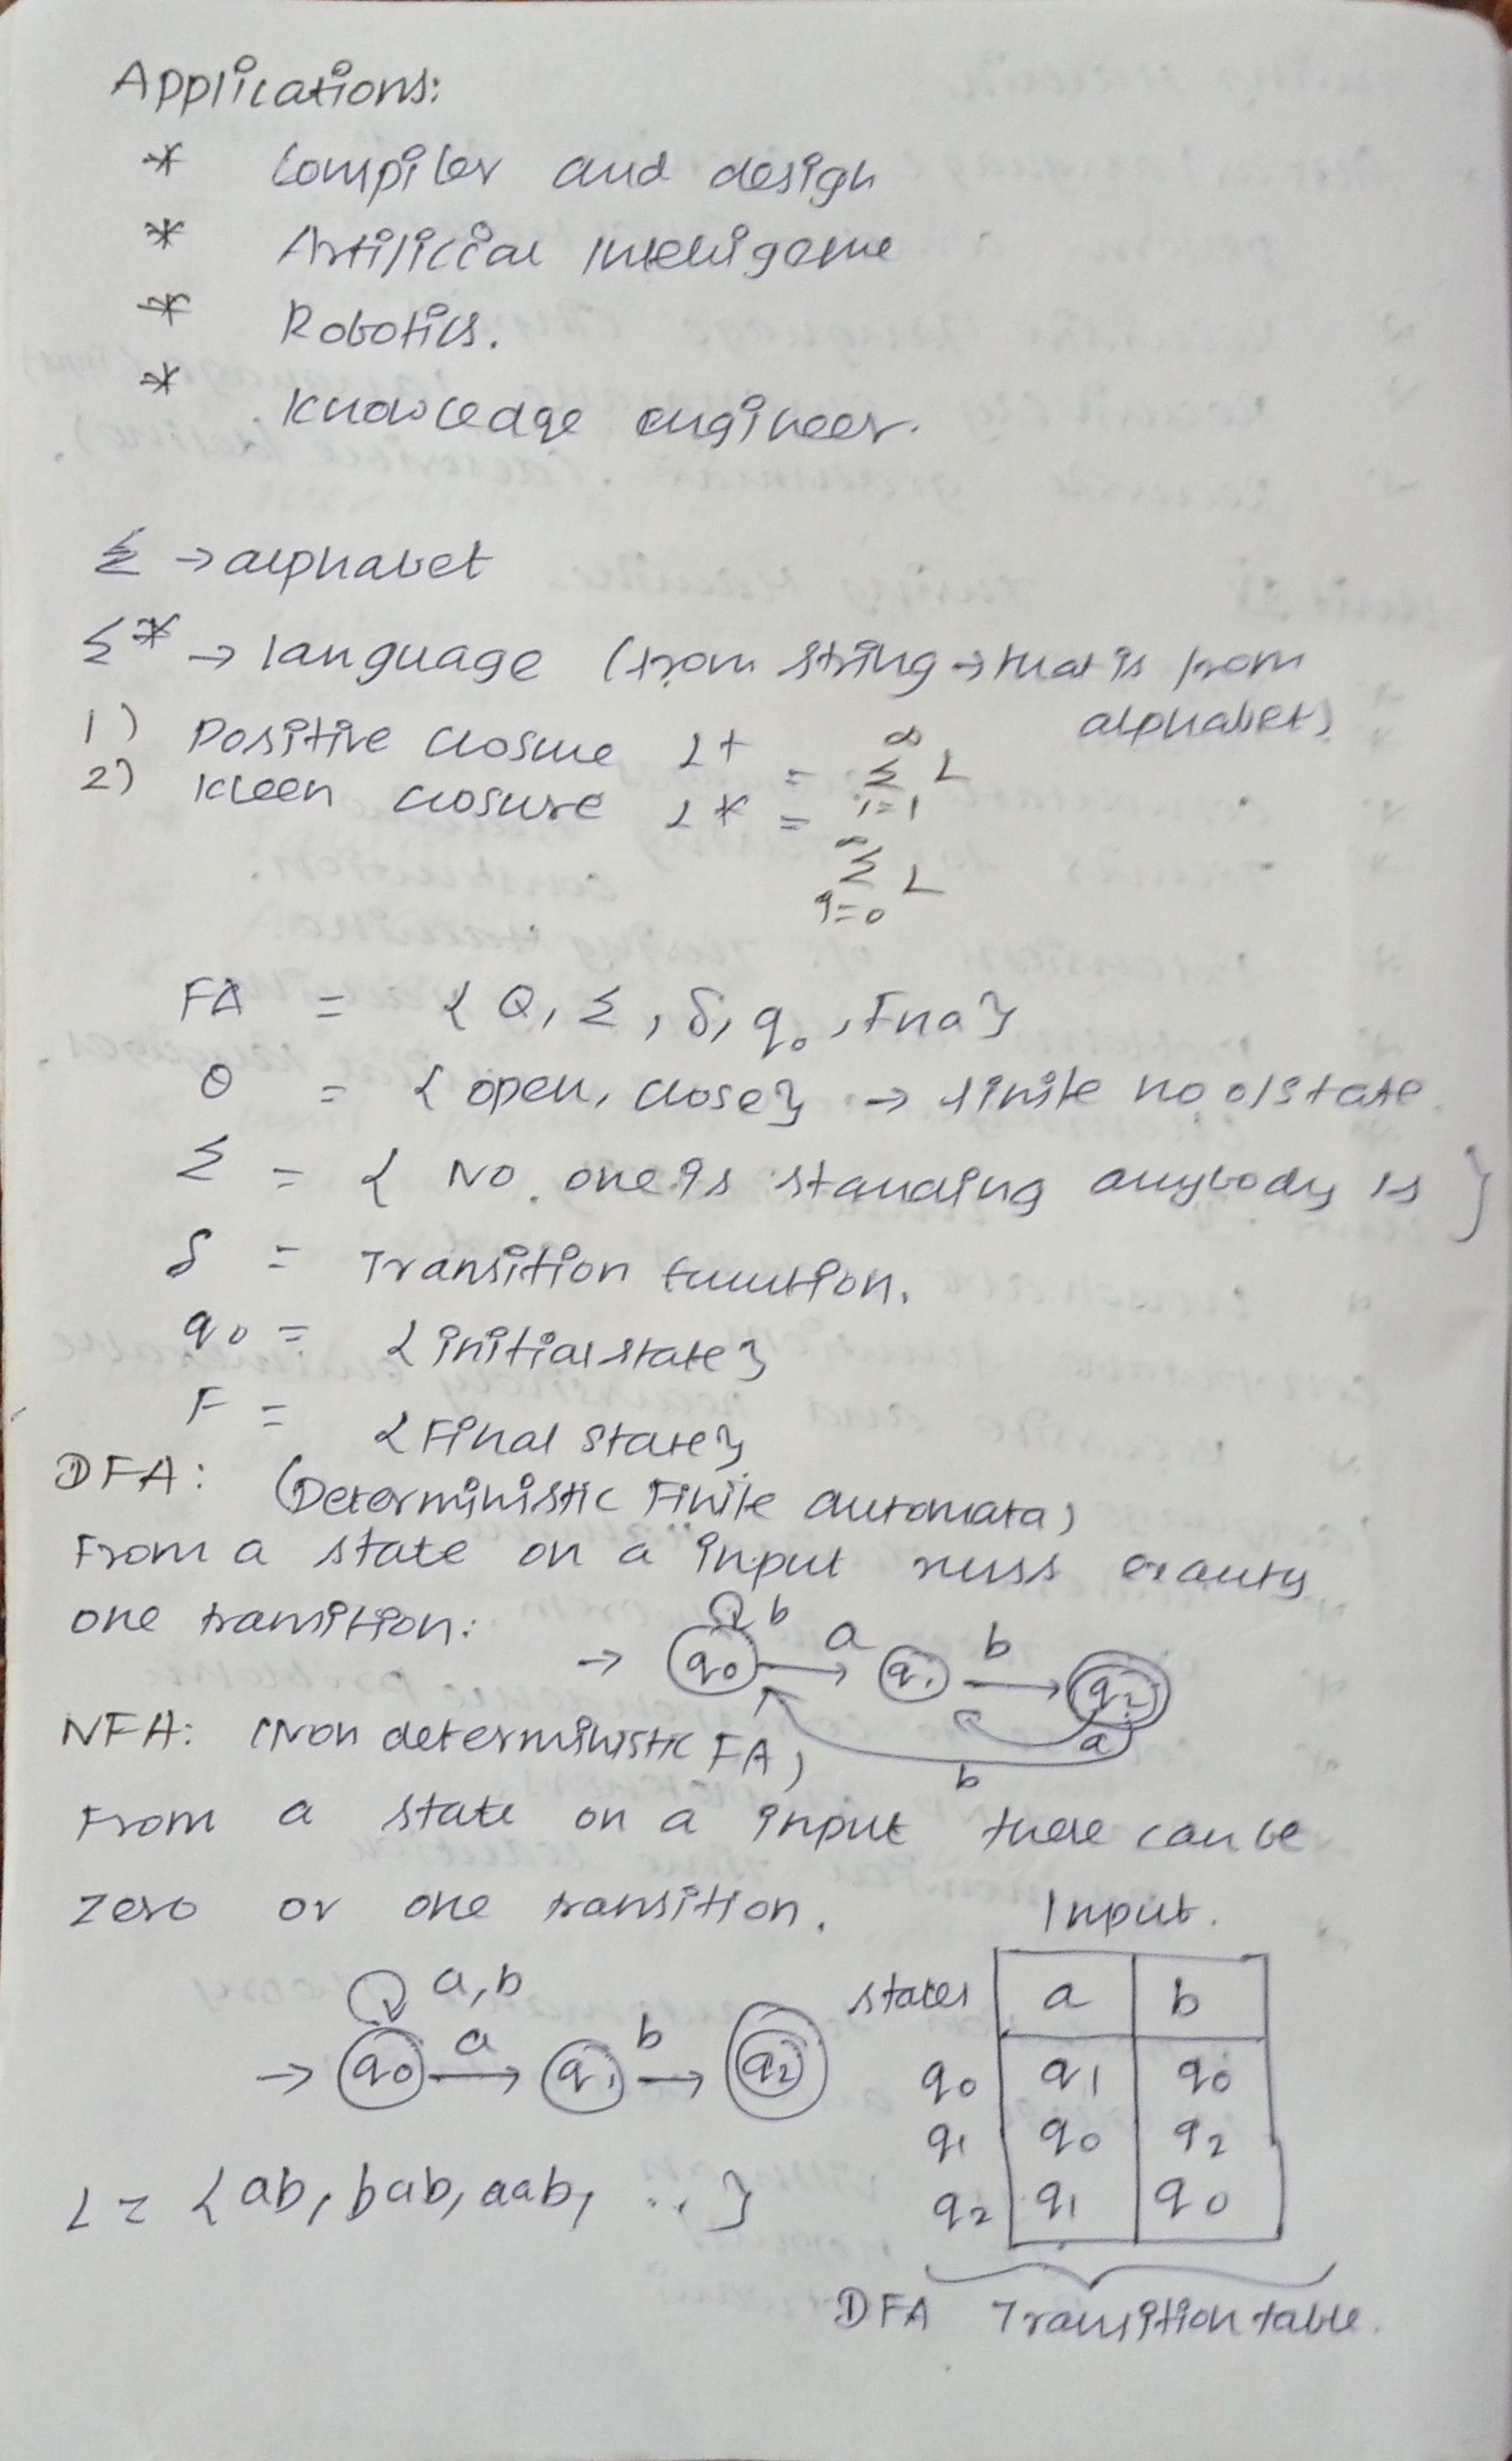 Applications:
* Compiler and design
* Artificial Intelligence
* Robotics.
* Knowledge engineer.
Σ → alphabet
Σ* → language (from string → that is from
alphabet)
1) Positive closure L+ = ∞ Σ i=1 L
2) Kleen closure L* = ∞ Σ i=0 L
FA = { Q, Σ, δ, q0, }
Q = { open, close} → finite no of state
Σ = { No one is standing anybody is }
δ = Transition function.
q0 = {initial state}
F = {Final state}
DFA: (Deterministic Finite automata)
From a state on a input exactly
one transition:
→ q0 b a q1 b q2
a
b
NFA: (Non deterministic FA)
From a state on a input there can be
zero or one transition.
→ q0 a,b a q1 b q2
L = {ab, bab, aab, ..}
Input.
states a b
q0 q1 q0
q1 q0 q2
q2 q1 q0
DFA Transition table.